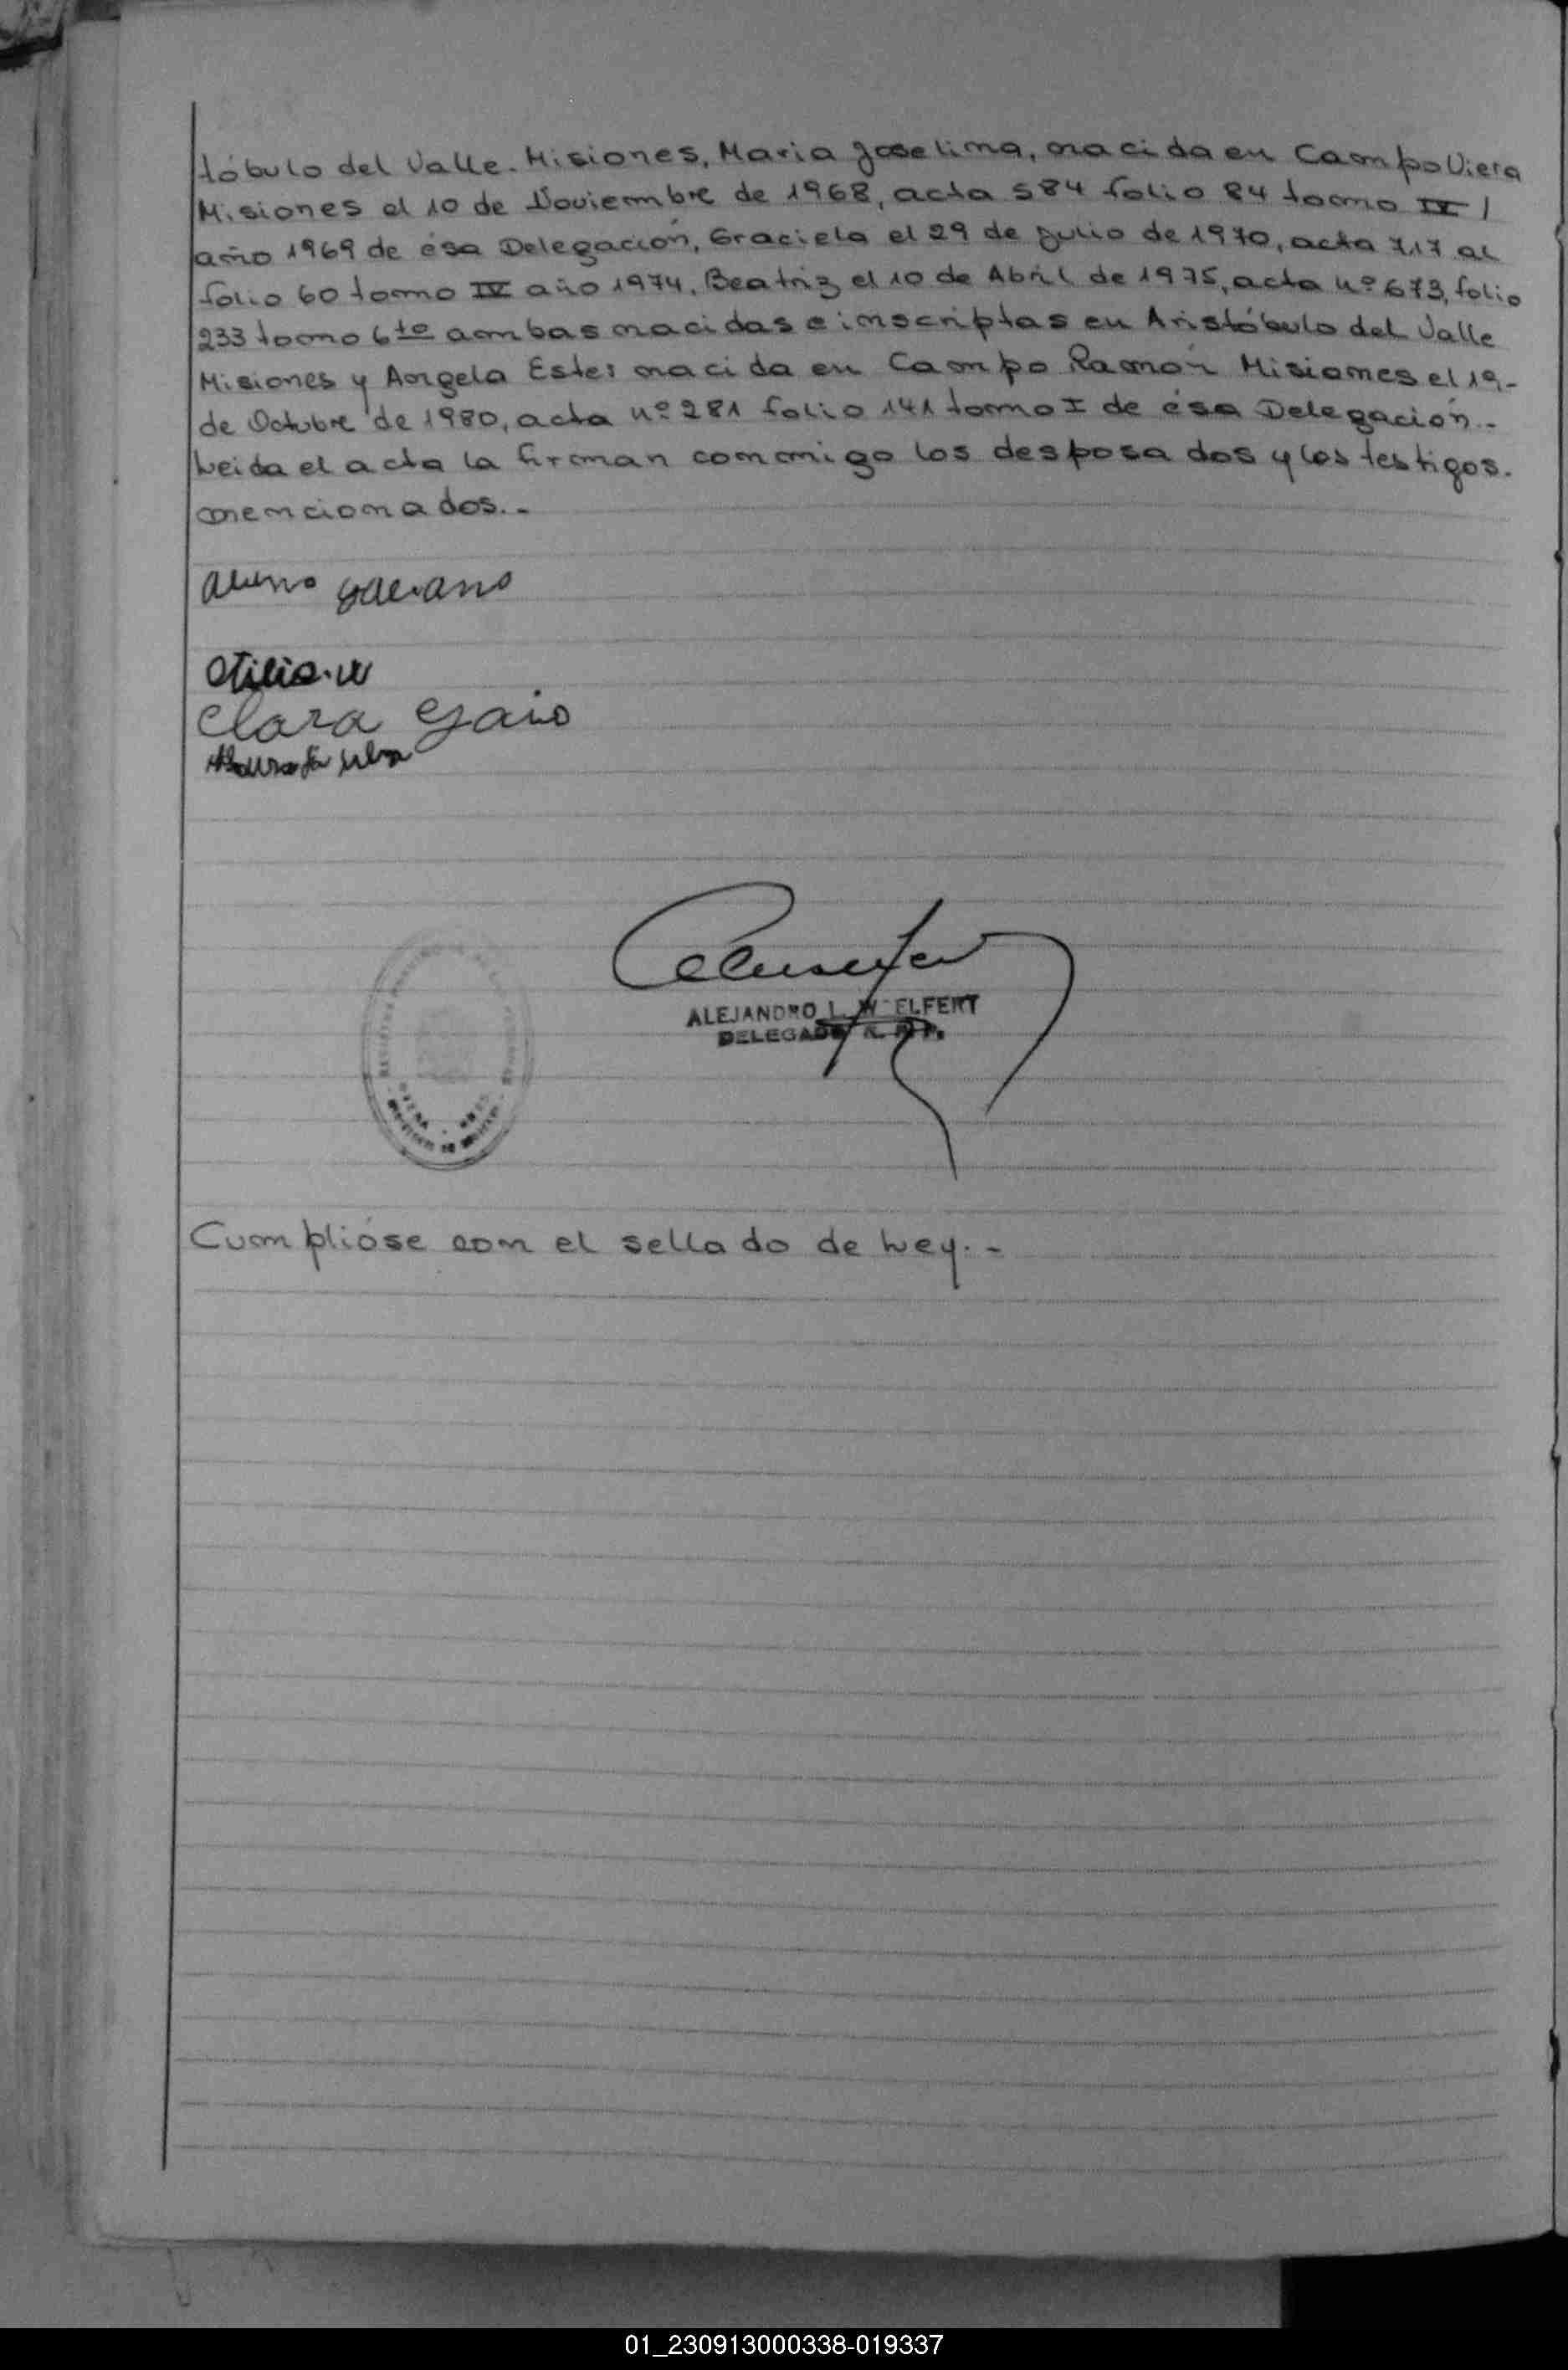 tóbulo del Valle. Misiones, Maria Joselima, nacida en Campo Viera
Misiones el 10 de Noviembre de 1968, acta 584 folio 84 tomo IV
año 1969 de ésa Delegación, Graciela el 29 de Julio de 1970, acta 717 al
folio 60 tomo IV año 1974, Beatriz el 10 de Abril de 1975, acta nº 673, folio
233 tomo 6to ambas nacidas e inscriptas en Aristóbulo del Valle
Misiones y Angela Ester nacida en Campo Ramón Misiones el 19-
de Octubre de 1980, acta nº 281 folio 141 tomo I de ésa Delegación.-
Leida el acta la firman conmigo los desposados y los testigos.
mencionados.-
Otilia
Clara Gaio
ALEJANDRO L. WELFERT
DELEGADO R. P.
Cumplióse con el sellado de Ley.-
01_230913000338-019337